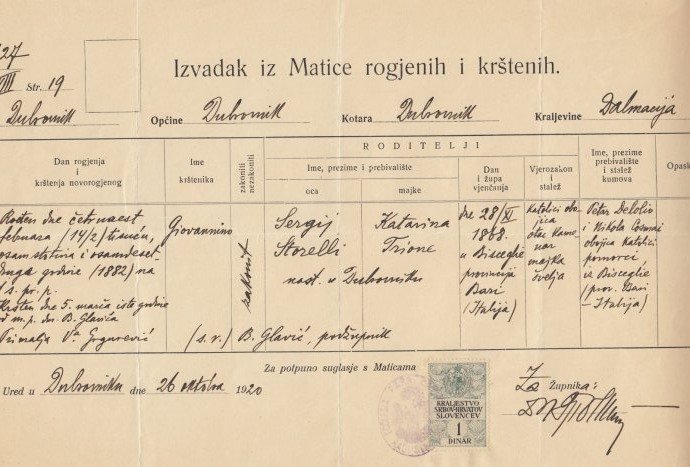 27
VIII Str. 19
Dubrovnik
Izvadak iz Matice rogjenih i krštenih.
Općine Dubrovnik Kotara Dubrovnik Kraljevine Dalmacija
Dan rogjenja
i
krštenja novorogjenog
Ime
krštenika
zakoniti
nezakoniti
RODITELJI
Ime, prezime i prebivalište
oca
majke
Dan
i župa
vjenčanja
Vjerozakon
i
stalež
Ime, prezime
prebivalište
i stalež
kumova
Opask
Rođen dne četrnaest
februara (14/2) tisuća,
osam stotina i osamdeset
druga godine (1882) na
1 s. pr. p.
Kršten dne 5. marča iste godine
m. p. dn. B. Glavića
Primalja Va Grgurević
Giovannino
(s. v.)
zakonit
Sergij
Storelli
Katarina
Trione
nast. u Dubrovniku
B. Glavić, podžupnik
dne 28/XI
1868.
u Bisceglie
provincija
Bari
(Italija)
Katolici obo-
jica
otac
majka
Petar Delolio
i Nikola Cosmai
obojica katolici
pomorci
iz Bisceglie
(prov. Bari
– Italija)
Za potpuno suglasje s Maticama
Ured u Dubrovniku dne 26 oktobra 1920
KRALJESTVO
SRBOV-HRVATOV
SLOVENCEV
1
DINAR
Za Župnika: